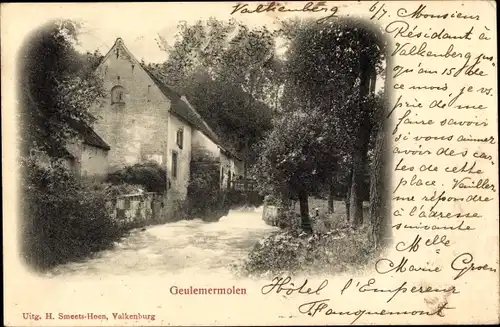 Valkenberg 6/7
Monsieur
Résidant à
Valkenberg jus
qu'au 15 de
ce mois, je vs.
prie de me
faire savoir
si vous aimer
des car
tes de cette
place. Veuillez
me répondre
à l'adresse
suivante
Melle
Marie Groen
Hôtel l'Empereur
Fauquemont
Geulemermolen
Uitg. H. Smeets-Heen, Valkenburg